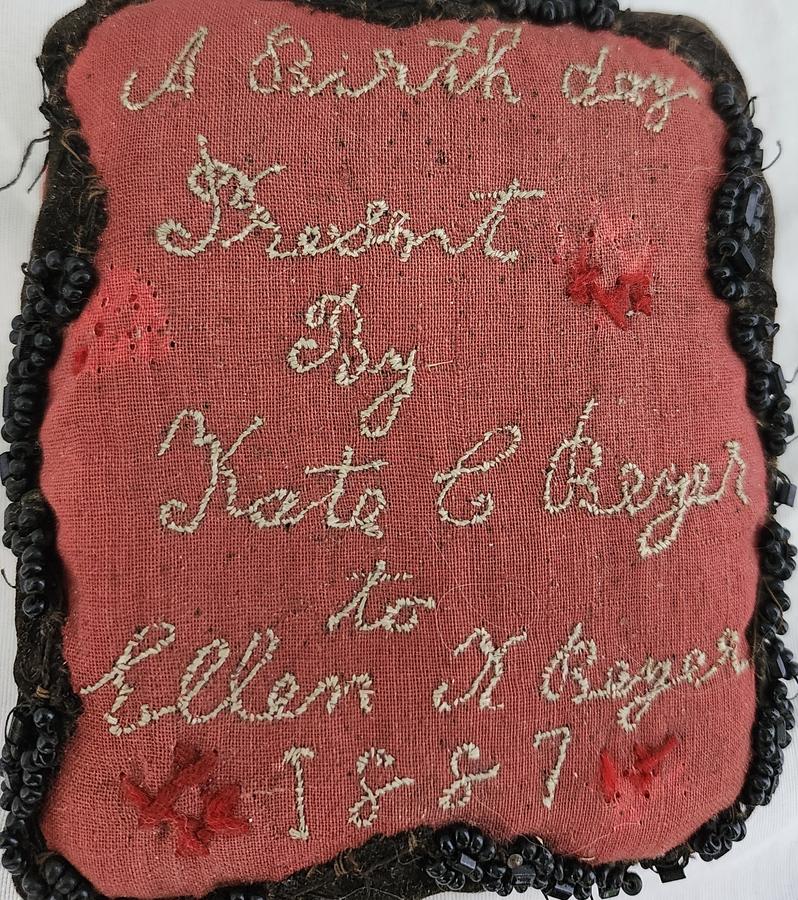 A Birth day
Present
By
Kate C Beyer
to
Ellen K Beyer
1887